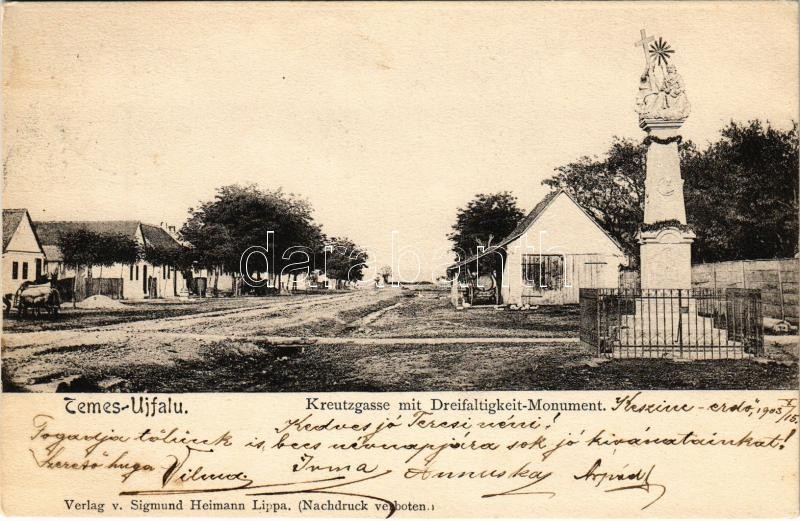 darabanth.com
Temes-Ujfalu.
Kreutzgasse mit Dreifaltigkeit-Monument.
1903 X/15
Kedves jó Teresi néni!
Fogadja tőlünk is, becs névnapjára sok jó kivánatainkat!
Szerető huga Vilma Irma Annuska Árpád
Verlag v. Sigmund Heimann Lippa. (Nachdruck verboten.)